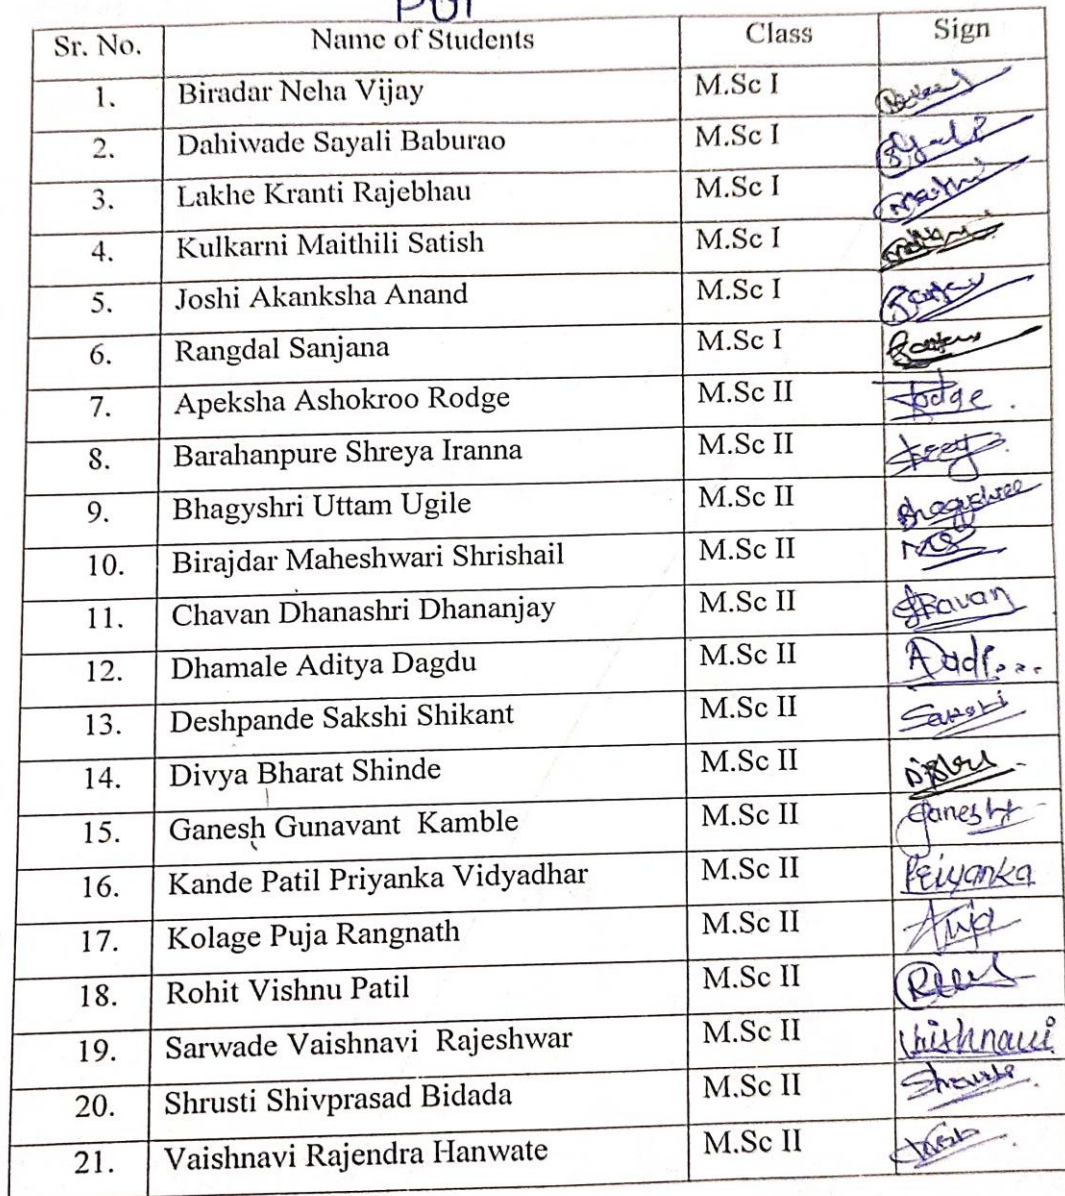 Sr. No. Name of Students Class Sign
1. Biradar Neha Vijay M.Sc I
2. Dahiwade Sayali Baburao M.Sc I
3. Lakhe Kranti Rajebhau M.Sc I
4. Kulkarni Maithili Satish M.Sc I
5. Joshi Akanksha Anand M.Sc I
6. Rangdal Sanjana M.Sc I
7. Apeksha Ashokroo Rodge M.Sc II
8. Barahanpure Shreya Iranna M.Sc II
9. Bhagyshri Uttam Ugile M.Sc II Bhagyshree
10. Birajdar Maheshwari Shrishail M.Sc II
11. Chavan Dhanashri Dhananjay M.Sc II
12. Dhamale Aditya Dagdu M.Sc II
13. Deshpande Sakshi Shikant M.Sc II
14. Divya Bharat Shinde M.Sc II
15. Ganesh Gunavant Kamble M.Sc II Ganesh
16. Kande Patil Priyanka Vidyadhar M.Sc II Priyanka
17. Kolage Puja Rangnath M.Sc II
18. Rohit Vishnu Patil M.Sc II
19. Sarwade Vaishnavi Rajeshwar M.Sc II Vaishnavi
20. Shrusti Shivprasad Bidada M.Sc II
21. Vaishnavi Rajendra Hanwate M.Sc II